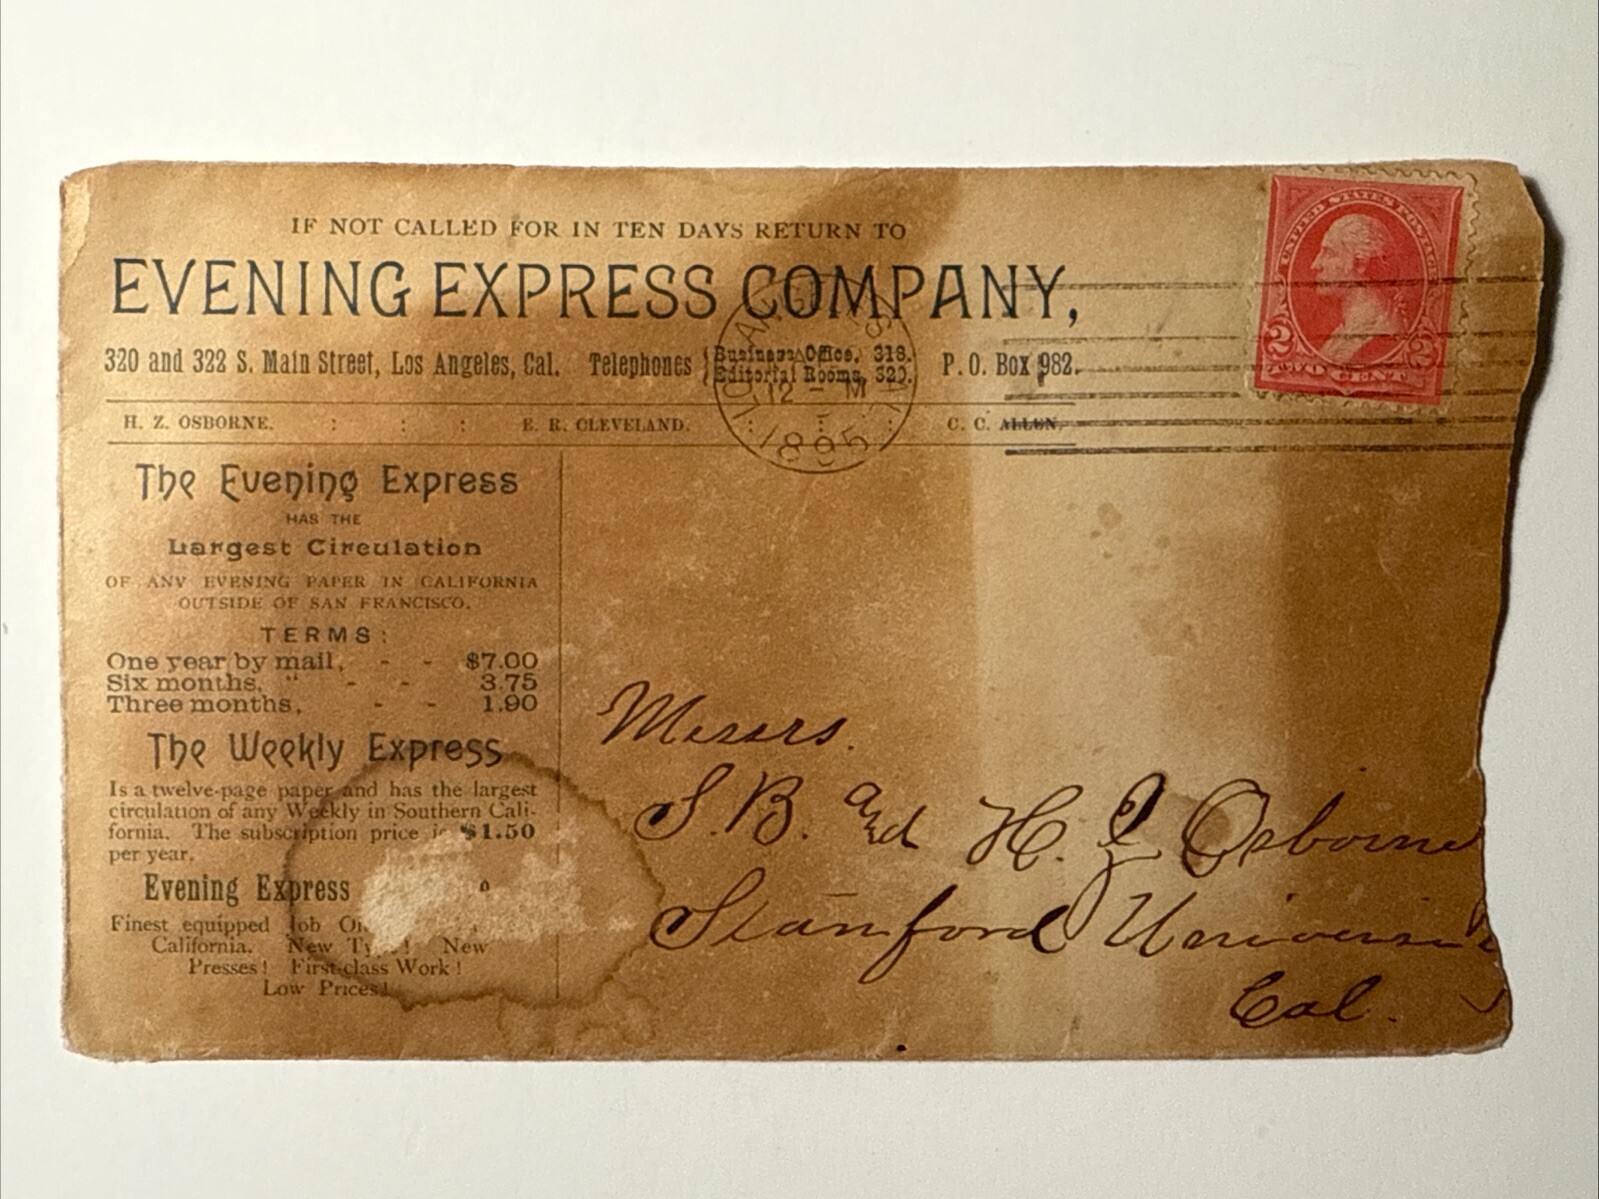 IF NOT CALLED FOR IN TEN DAYS RETURN TO
EVENING EXPRESS COMPANY,
320 and 322 S. Main Street, Los Angeles, Cal. Telephones { Business Office, 318. P. O. Box 982.
Editorial Rooms, 320.
H. Z. OSBORNE. : : : E. R. CLEVELAND. : : : C. C. ALLEN.
LOS ANGELES, CAL.
12 - M
1895
UNITED STATES POSTAGE
2 2
TWO CENTS
The Evening Express
HAS THE
Largest Circulation
OF ANY EVENING PAPER IN CALIFORNIA
OUTSIDE OF SAN FRANCISCO.
TERMS:
One year by mail, - - $7.00
Six months, " - - 3.75
Three months, - - 1.90
The Weekly Express
Is a twelve-page paper and has the largest
circulation of any Weekly in Southern Cali-
fornia. The subscription price is $1.50
per year.
Evening Express
Finest equipped Job
California. New New
Presses! First-class Work!
Low Prices!
Messrs.
S. B. and H. Z Osborne
Stanford
Cal.